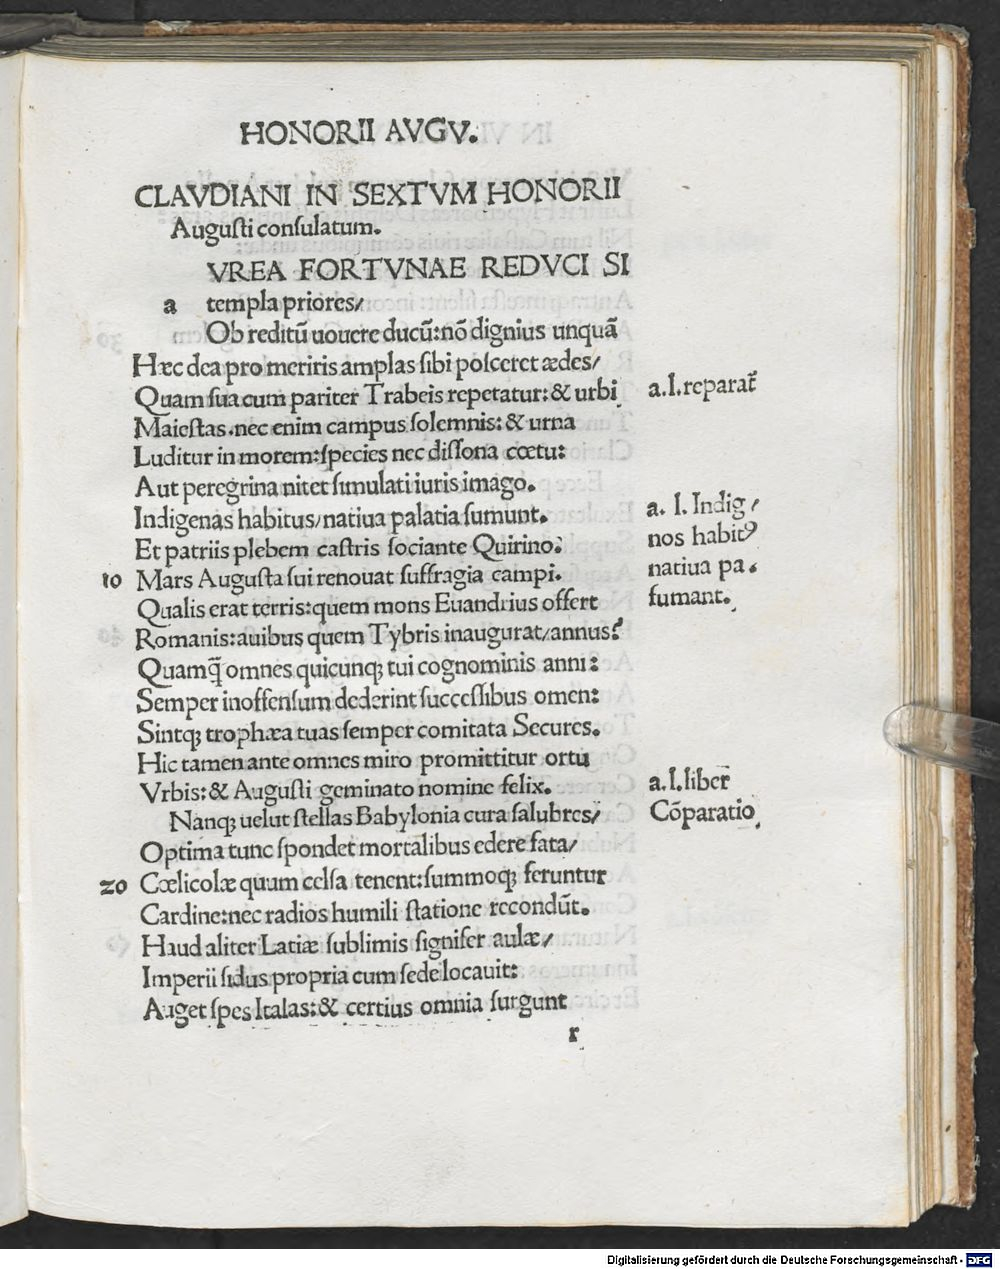 HONORII AVGV.
CLAVDIANI IN SEXTVM HONORII
Augusti consulatum.
VREA FORTVNAE REDVCI SI
a templa priores/
Ob reditū uouere ducū: nō dignius unquā
Hæc dea pro meritis amplas sibi posceret ædes/
Quam sua cum pariter Trabeis repetatur: & urbi
a. l. reparat̄
Maiestas. nec enim campus solemnis: & urna
Luditur in morem: species nec dissona cœtu:
Aut peregrina nitet simulati iuris imago.
Indigenas habitus/ natiua palatia sumunt.
a. l. Indig/
nos habitꝰ
natiua pa.
fumant.
Et patriis plebem castris sociante Quirino:
10 Mars Augusta sui renouat suffragia campi.
Qualis erat terris: quem mons Euandrius offert
Romanis: auibus quem Tybris inaugurat/ annus?
Quamq̄ omnes quicunqꝫ tui cognominis anni:
Semper inoffensum dederint successibus omen:
Sintqꝫ trophæa tuas semper comitata Secures.
Hic tamen ante omnes miro promittitur ortu
Vrbis: & Augusti geminato nomine felix.
a. l. liber
Nanqꝫ uelut stellas Babylonia cura salubres/
Cōparatio
Optima tunc spondet mortalibus edere fata/
20 Cœlicolæ quum celsa tenent: summoqꝫ feruntur
Cardine: nec radios humili statione recondūt.
Haud aliter Latiæ sublimis signifer aulæ/
Imperii sidus propria cum sede locauit:
Auget spes Italas: & certius omnia surgunt
r
Digitalisierung gefördert durch die Deutsche Forschungsgemeinschaft - DFG